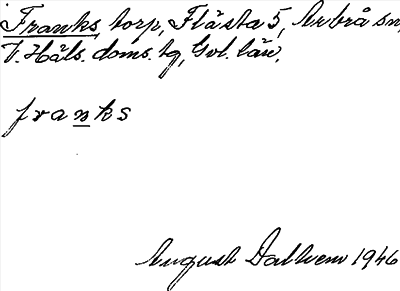 Franks, torp, Flästa 5, Arbrå sn,
V. Häls. doms. tg, Gvl. län.
franks
August Dallvem 1946